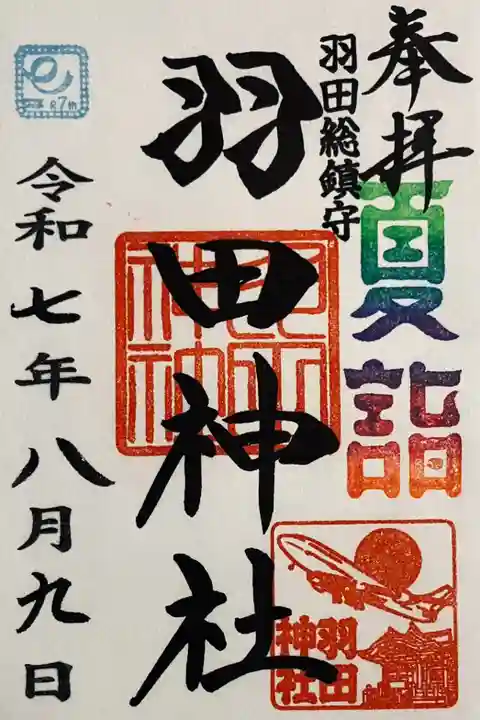 奉拝
羽田総鎮守
夏詣
羽田神社
羽田
神社
令和七年八月九日
R7